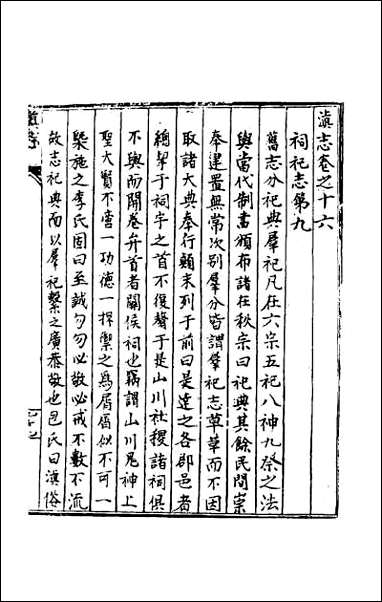 滇志卷之十六
祠祀志第九
舊志分祀典羣祀凡在六宗五祀八神九祭之法
與當代制書頒布諸在秩宗曰祀典其餘民間崇
奉建置無常次別羣分皆謂羣祀志草華而不因
取諸大典奉行顛末列于前曰是達之各郡邑者
總舉于祠宇之首不復贅于是山川社稷諸祠俱
不與而開卷弁首者關侯祠也竊謂山川鬼神上
聖大賢不啻一功德一捍禦之為屑屑似不可一
槩施之李氏固曰至誠勿勿必敬必戒不數不流
故志祀典而以羣祀繫之廣恭敬也包氏曰滇俗